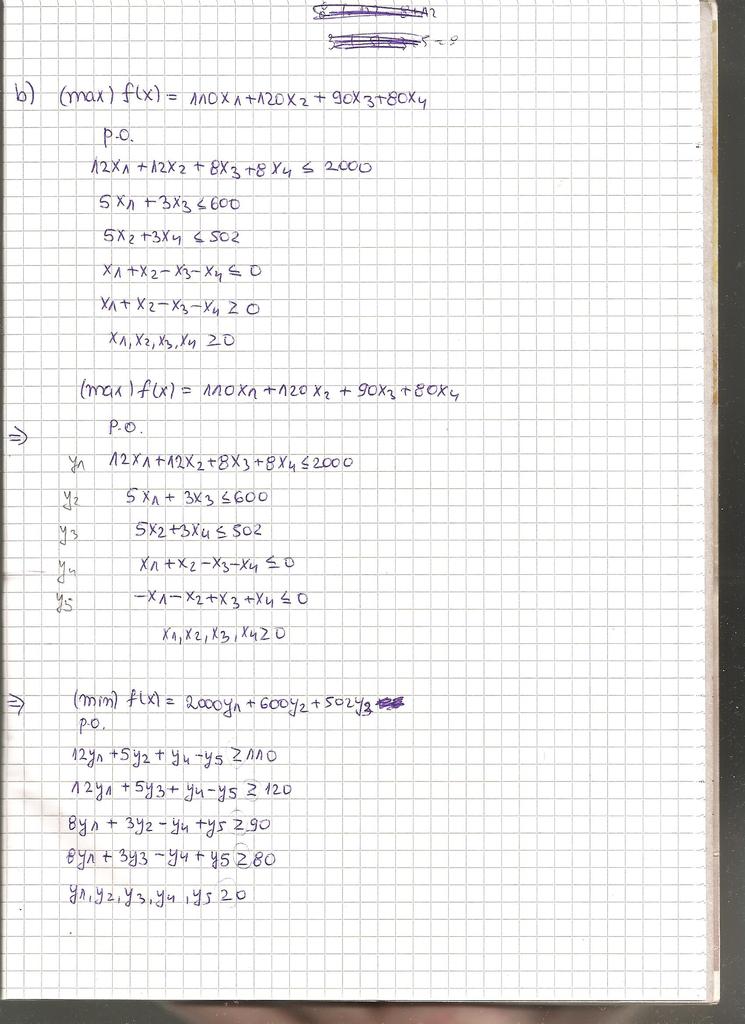 b) (max) f(x) = 110x1+120x2 + 90x3+80x4
p.o.
12x1+12x2+8x3+8x4 ≤ 2000
5x1 + 3x3 ≤ 600
5x2+3x4 ≤ 502
x1+x2-x3-x4 ≤ 0
x1+x2-x3-x4 ≥ 0
x1,x2,x3,x4 ≥0
(max) f(x) = 110x1 +120x2 + 90x3+80x4
⇒ p.o.
y1 12x1+12x2+8x3+8x4 ≤ 2000
y2 5x1 + 3x3 ≤ 600
y3 5x2+3x4 ≤ 502
y4 x1+x2-x3-x4 ≤ 0
y5 -x1-x2+x3+x4 ≤ 0
x1,x2,x3,x4 ≥ 0
⇒ (min) f(x) = 2000y1 + 600y2 + 502y3
p.o.
12y1 +5y2 + y4-y5 ≥ 110
12y1 +5y3+ y4-y5 ≥ 120
8y1 + 3y2 - y4 + y5 ≥ 90
8y1 + 3y3 - y4 + y5 ≥ 80
y1,y2,y3,y4,y5 ≥ 0